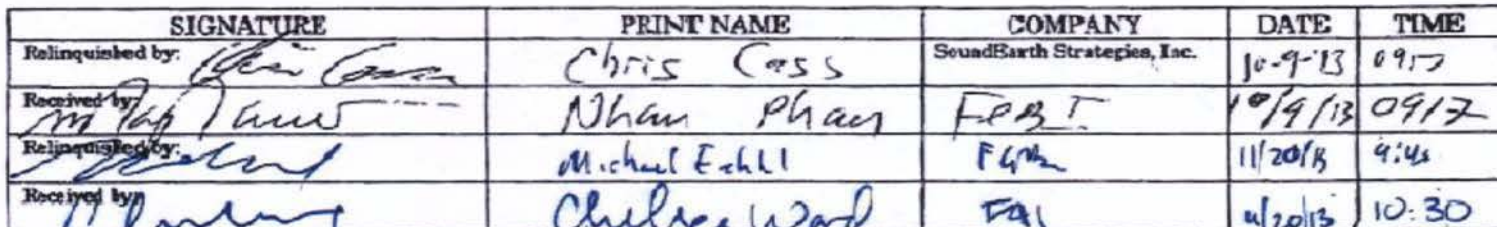 SIGNATURE PRINT NAME COMPANY DATE TIME
Relinquished by: Chris Cass SoundEarth Strategies, Inc. 10-9-13
Received by: Nhan Phan 10/9/13 0917
Relinquished by: Michael 11/20/13
Received by: Chelsea Ward 11/20/13 10:30